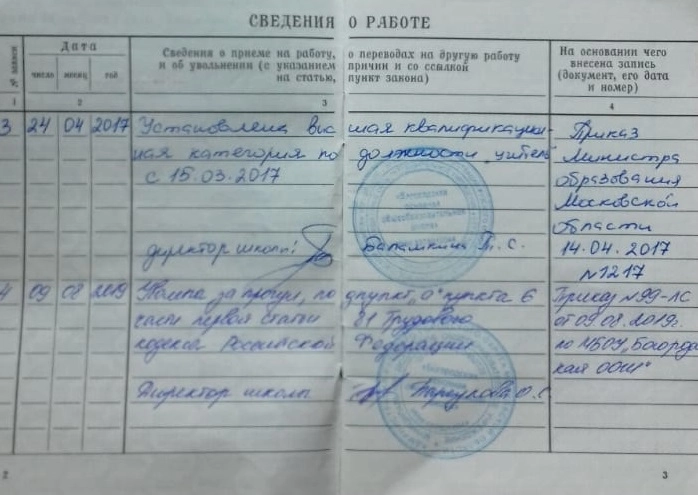 СВЕДЕНИЯ О РАБОТЕ
№ записи
Дата
число
месяц
год
Сведения о приеме на работу, о переводах на другую работу
и об увольнении (с указанием причин и со ссылкой
на статью, пункт закона)
На основании чего
внесена запись
(документ, его дата
и номер)
1
2
3
4
3 24 04 2017 Установлена высшая квалификацион-
ная категория по должности учитель
с 15.03.2017
директор школы: Т. С.
Приказ
Министра
образования
Московской
области
14.04.2017
№1217
4 09 08 2019 за прогул, подпункт "а" пункта 6
части первой статьи 81 Трудового
кодекса Российской Федерации
Директор школы О. С.
Приказ №99-ЛС
от 09.08.2019г.
по МБОУ
кая ООШ"
2
3